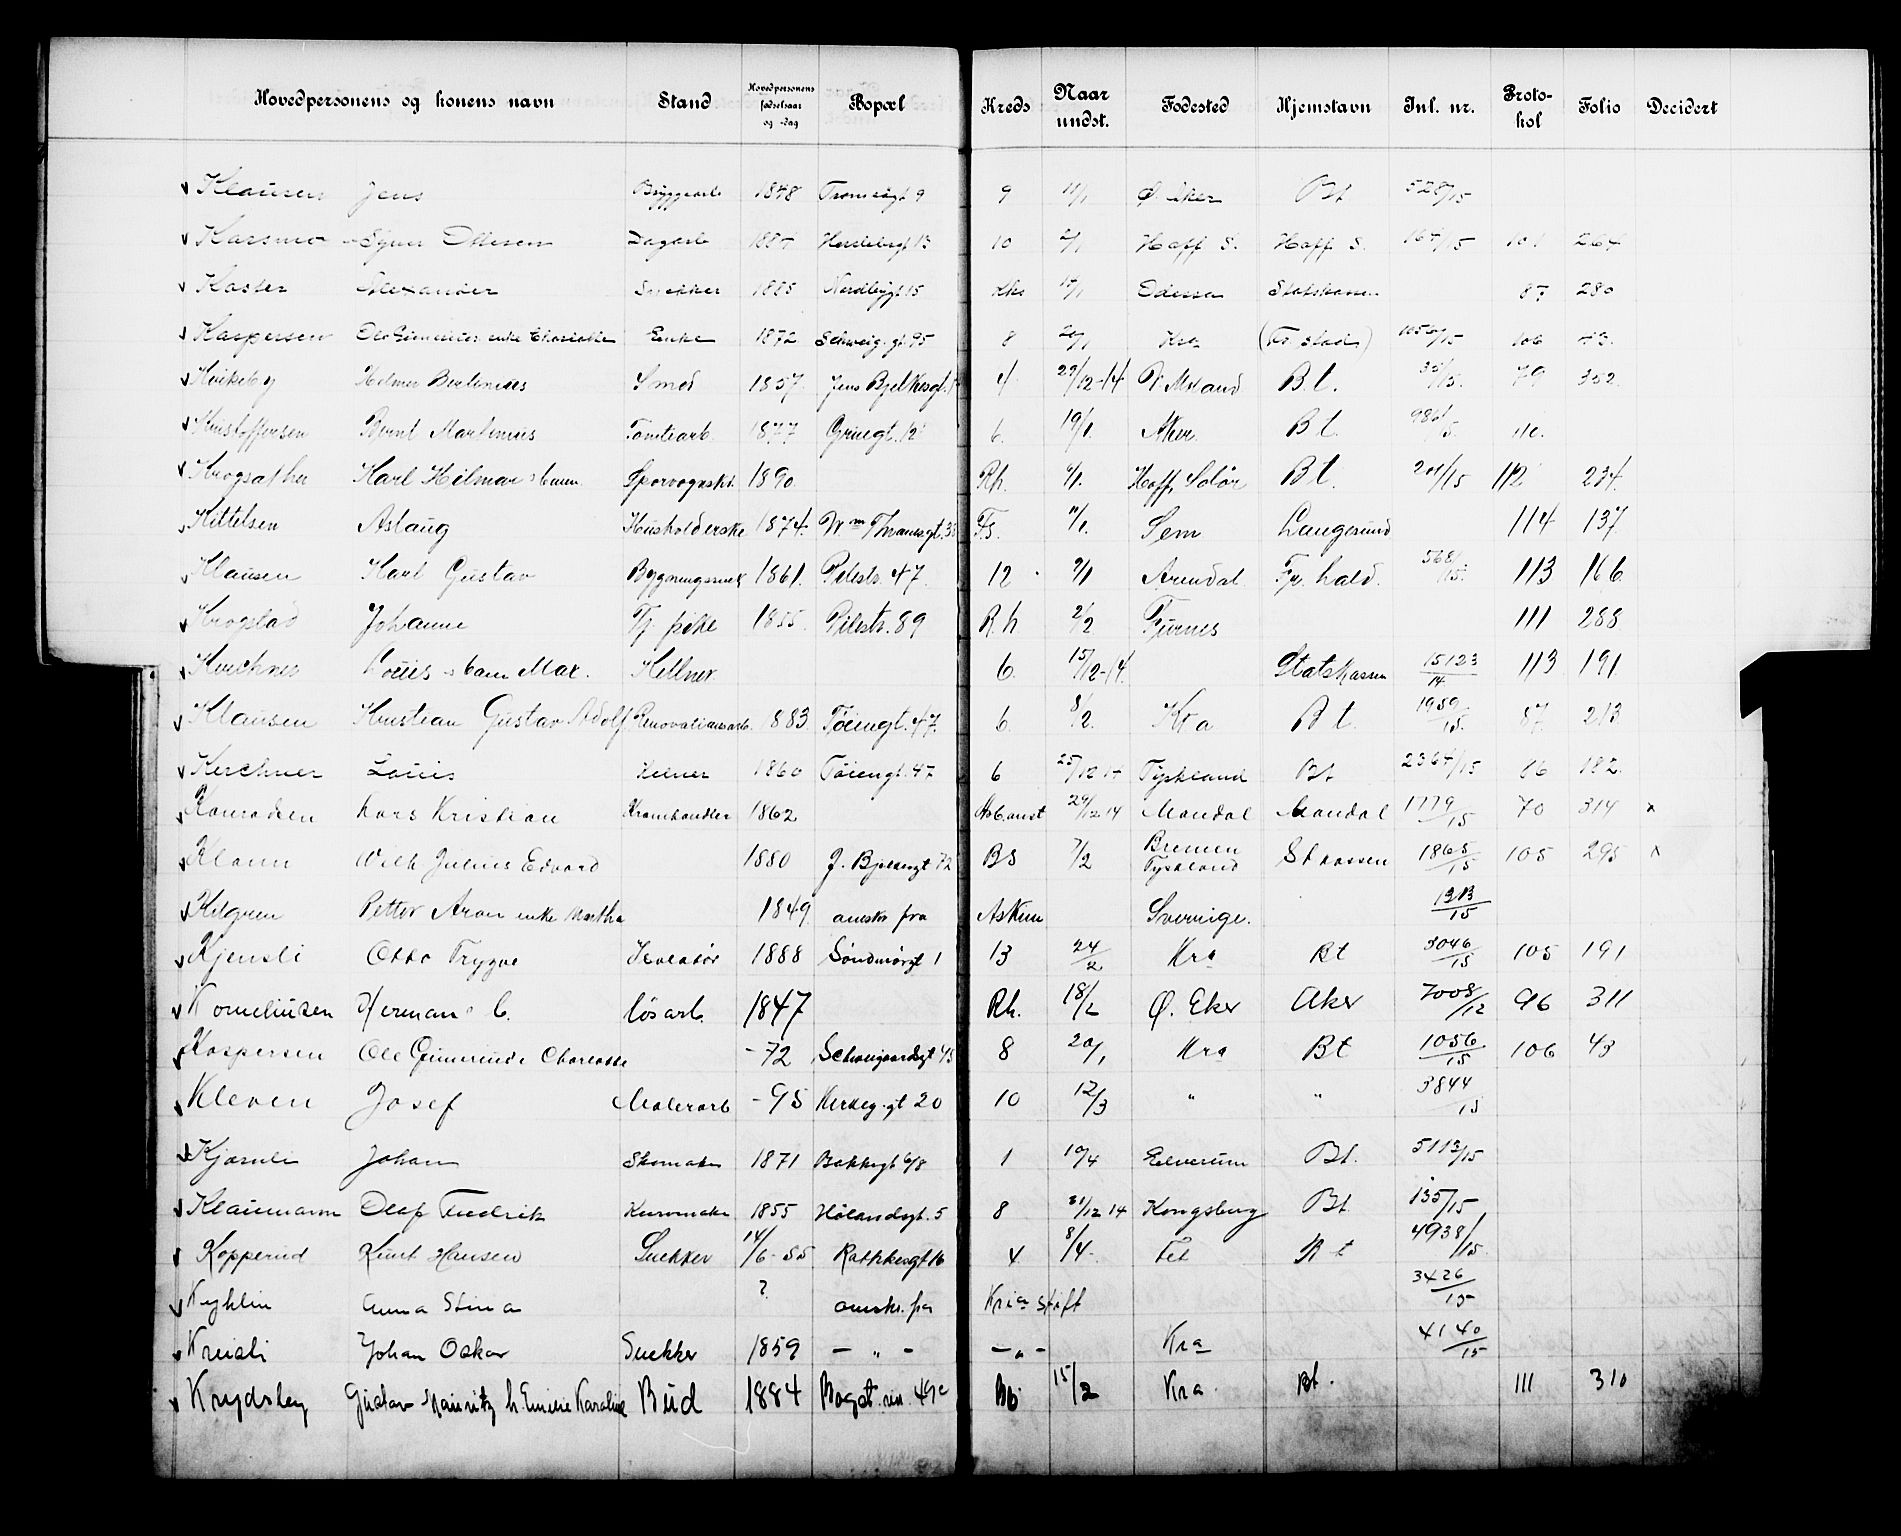 Hovedpersonens og konens navn Stand Hovedpersonens fødselsaar og -dag Bopæl Kreds Naar undst. Fødested Hjemstavn Inl. nr. Proto-kol Folio Decidert
Klausen Jens Bryggearb 1848 Tromsøgt 9 9 11/1 Ø. Aker Bt 528/15
Karsmo Dagarb 10 2/1 Hoff S. Hoff S. 101 264
Koster Alexander Snekker 1885 Nordbygt 15 Odessa Statskassen 87 280
Kaspersen Ole Gunerius enke Charlotte Enke 1872 Schweig. gt. 95 8 20/1 Kra (Fr. stad) 1056/15 106 43
Kvikeby Helmer Smed 1857. Jens Bjelkesgt. 4. 29/12-14 B.t. 35/15. 79 352
Kristoffersen Bernt Martinius Tomtearb. 1877 Grünegt. 12 6. 19/1. Aker Bt. 110.
Krogsæther Karl Hilmar Sporvognskt. 1890. Rh. Hoff, Solør Bt. 201/15 112 234.
Kittelsen Aslaug Husholderske 1874. Wm Thranesgt. 33 Fs. 11/1. Sem Langesund 114 137.
Klausen Karl Gustav Bygningssnek 1861. Pilestr. 47. 12 9/1 Arendal. Fr. hald. 568/15. 113 166
Krogstad Johanne Tj. pike 1855. Pilestr. 89 R.h 2/2 Fürnes 111 288
Kirchner Louis Max. Kellner. 6. 15/12-14. Statskassen 15123/14 113 191
Klausen Kristian Gustav Adolf Renovationsarb. 1883. Tøiengt. 47. 6. 8/2. Kra Bt. 1959/15. 87. 213
Kerchner Louis Kelner 1860 Tøiengt. 47 6 25/12 14 Tyskland Bt 2364/15 86 182.
Konradsen Lars Kristian Kramhandler 1862 Arb.anst 29/12 14 Mandal Mandal 1779/15 70 314 x
Klann Wilh Julius Edvard 1880 J. Bjelkesgt 72 BS 7/2 Bremen Tyskland St kassen 1865/15 105 295 x
Kilgren Petter Aron enke Martha 1849. anskr. fra Askim Sverrige. 1313/15
Kjensli Otto Trygve Isolatør 1888 Søndmørgt 1 13 24/2 Kra Bt 3046/15 105 191
Korneliussen Herman C. Løsarb. 1847 Rh. 18/2 Ø. Eker Aker 7008/12 96 311
Kaspersen Ole Gunerius e Charlotte -72 Schweigaardsgt 95 8 20/1 Kra Bt 1056/15 106 43
Kleven Josef Malerarb -95 Kirkeg.gt 20 10 12/3 " " 3844/15
Kjærnli Johan Skomaker 1871 Bakkegt 6/8 1 10/4 Elverum Bt. 5113/15
Klausmann Olaf Fredrik Kurvmaker 1855 Hølandsgt. 5 8 31/12 14 Kongsberg Bt. 135/15
Kopperud Knut Hansen Snekker 14/6-55 Rathkesgt 16 4 8/4. Fet Bt 4938/15.
Kyhlin Anna Stina ? anskr. fra Kria Stift 3426/15
Kruisli Johan Oskar Snekker 1859 - " - - " - Kra 4140/15
Krydsby Gustav Mauritz h. Emilie Karoline Bud 1884 Bogst.vn. 49c Bb. 15/2 Kra Bt. 111 310